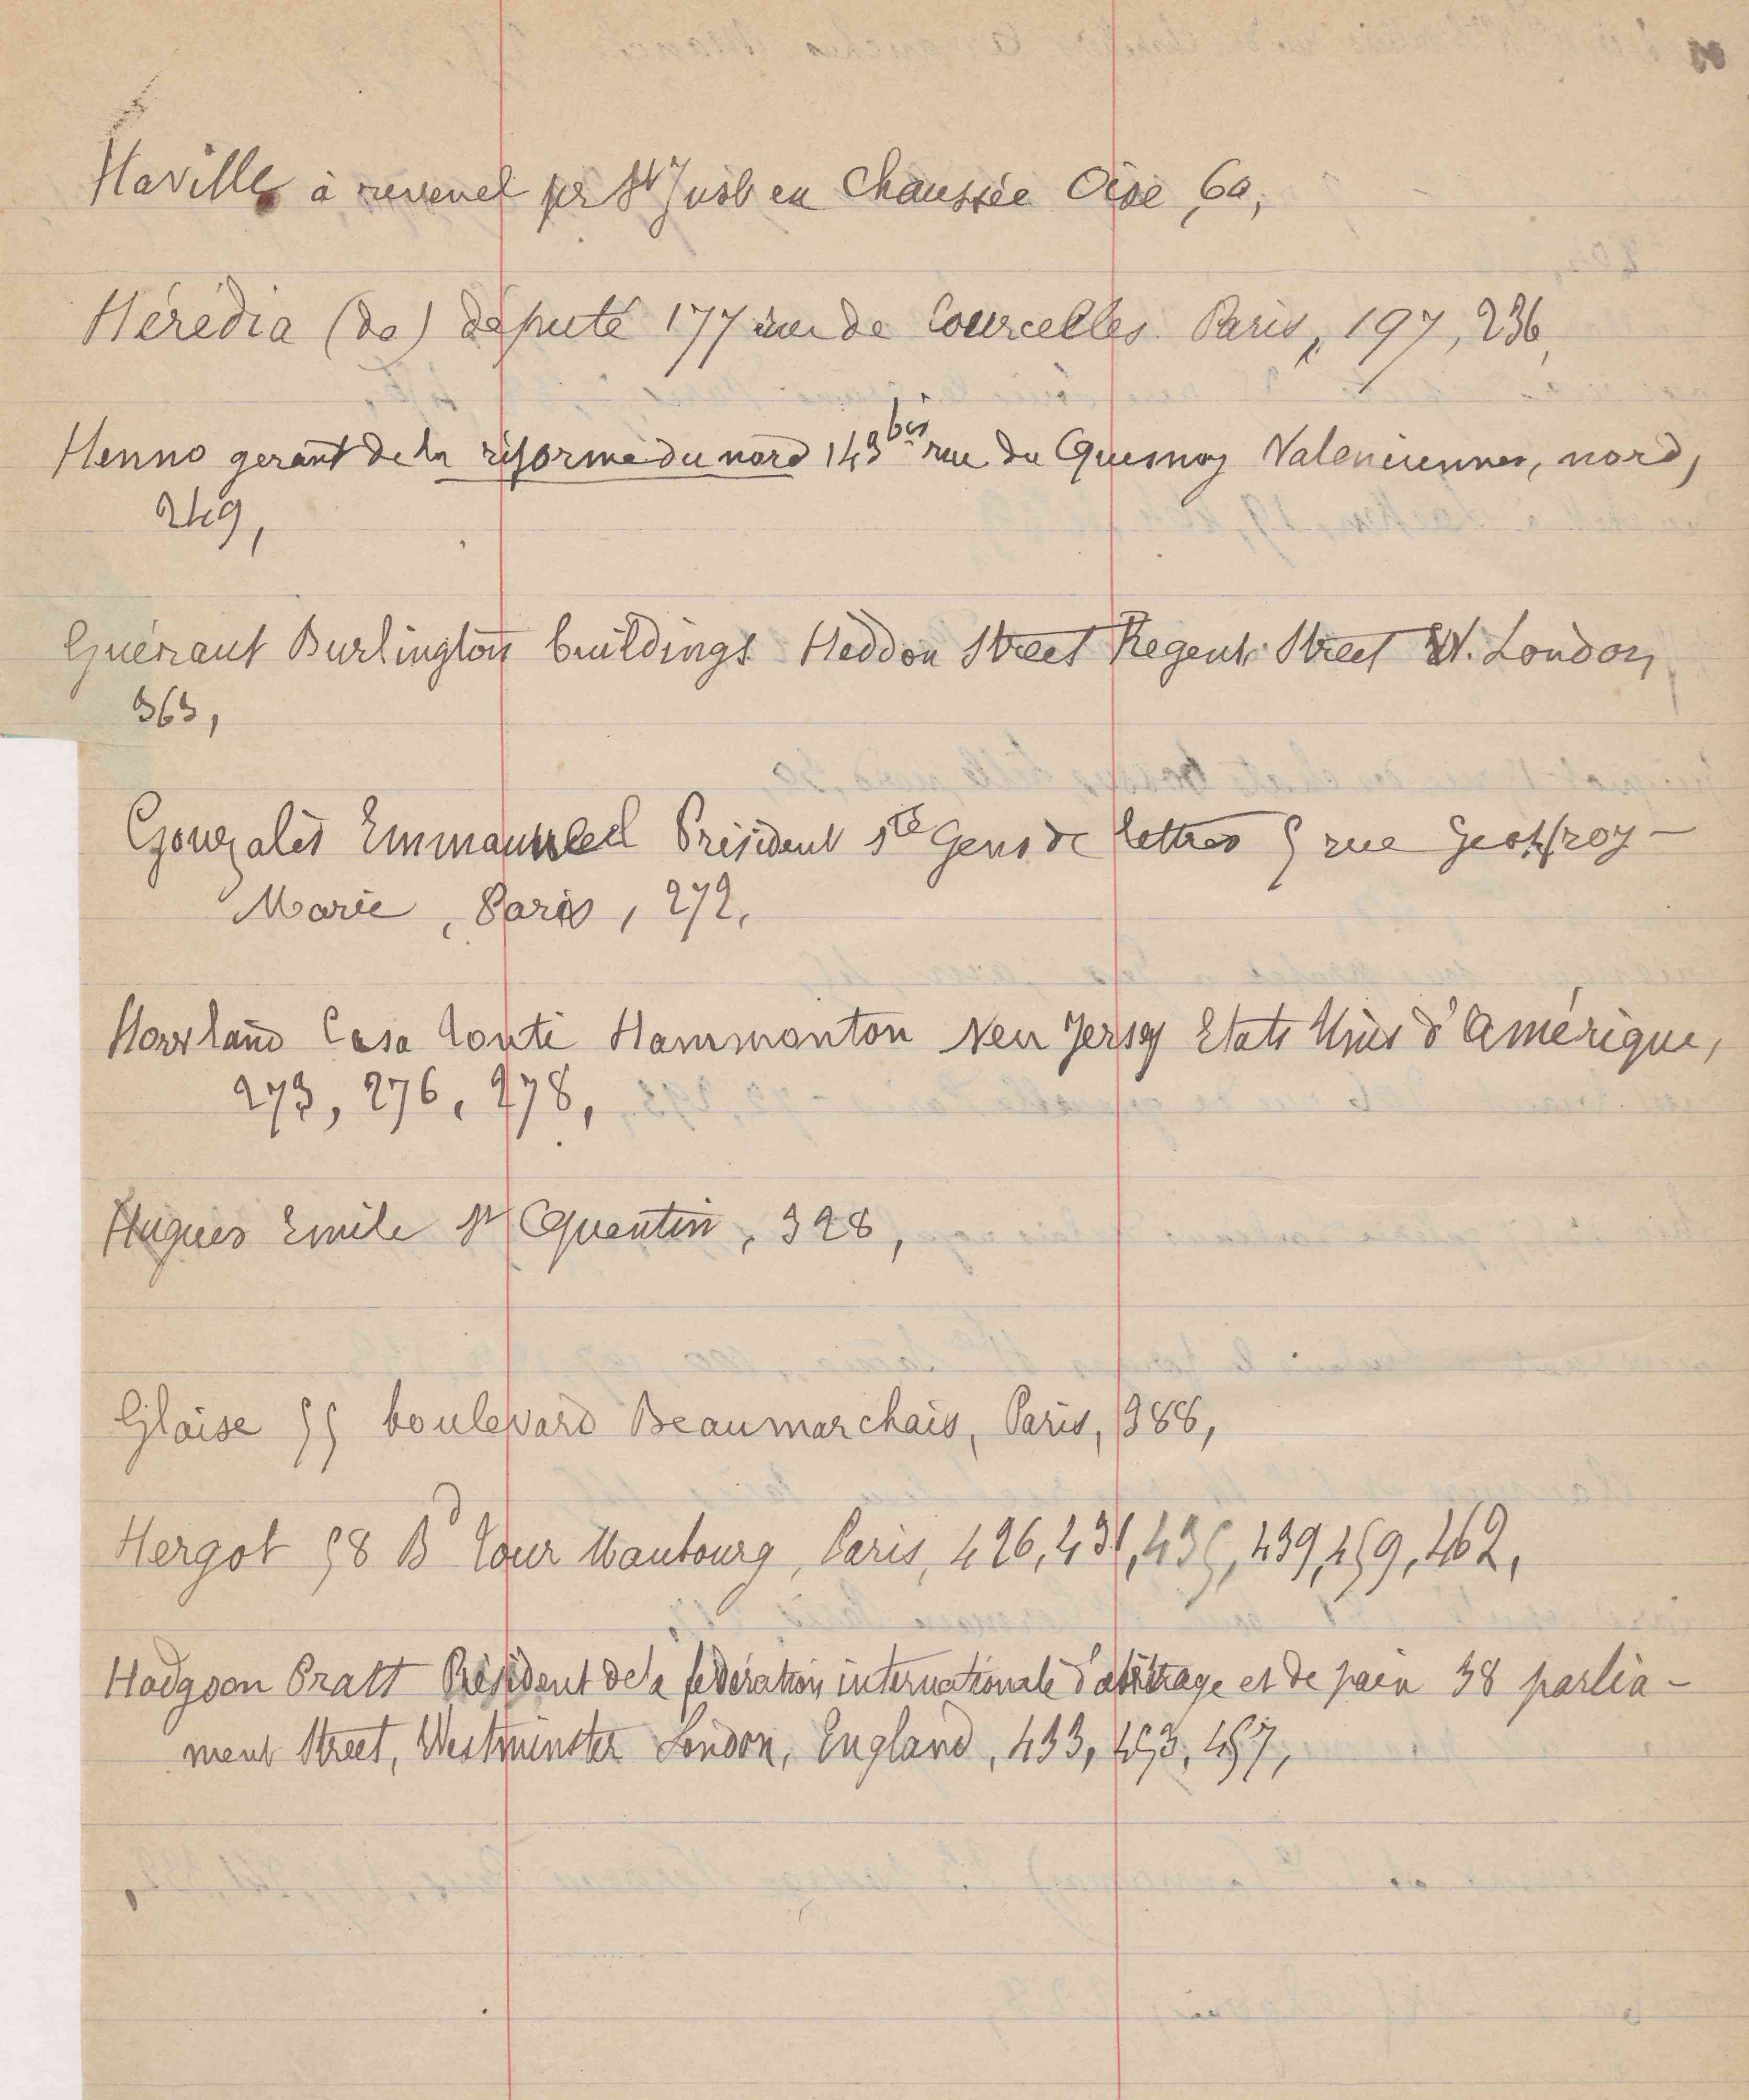 Haville à revenel pr St Just en Chaussée Oise 60,
Hérédia (de) député 177 rue de Courcelles. Paris, 197, 236,
Henno gerant de la réforme du nord 143 bis rue du Quesnoy Valenciennes, nord,
249,
Guérant Burlington buildings Heddon Street Regent Street W. London,
363,
Gonzalès Emmanuel Président sté Gens de lettres 5 rue Geoffroy-
Marie, Paris, 272,
Howland Casa Tonti Hammonton New Jersey Etats Unis d'Amérique,
273, 276, 278,
Hugues Emile St Quentin, 328,
Glaise 55 boulevard Beaumarchais, Paris, 388,
Hergot 58 Bd Tour Maubourg, Paris, 426, 431, 435, 439, 459, 462,
Hodgson Pratt Président de la fédération internationale d'arbitrage et de paix 38 parlia-
ment Street, Westminster London, England, 433, 453, 457,